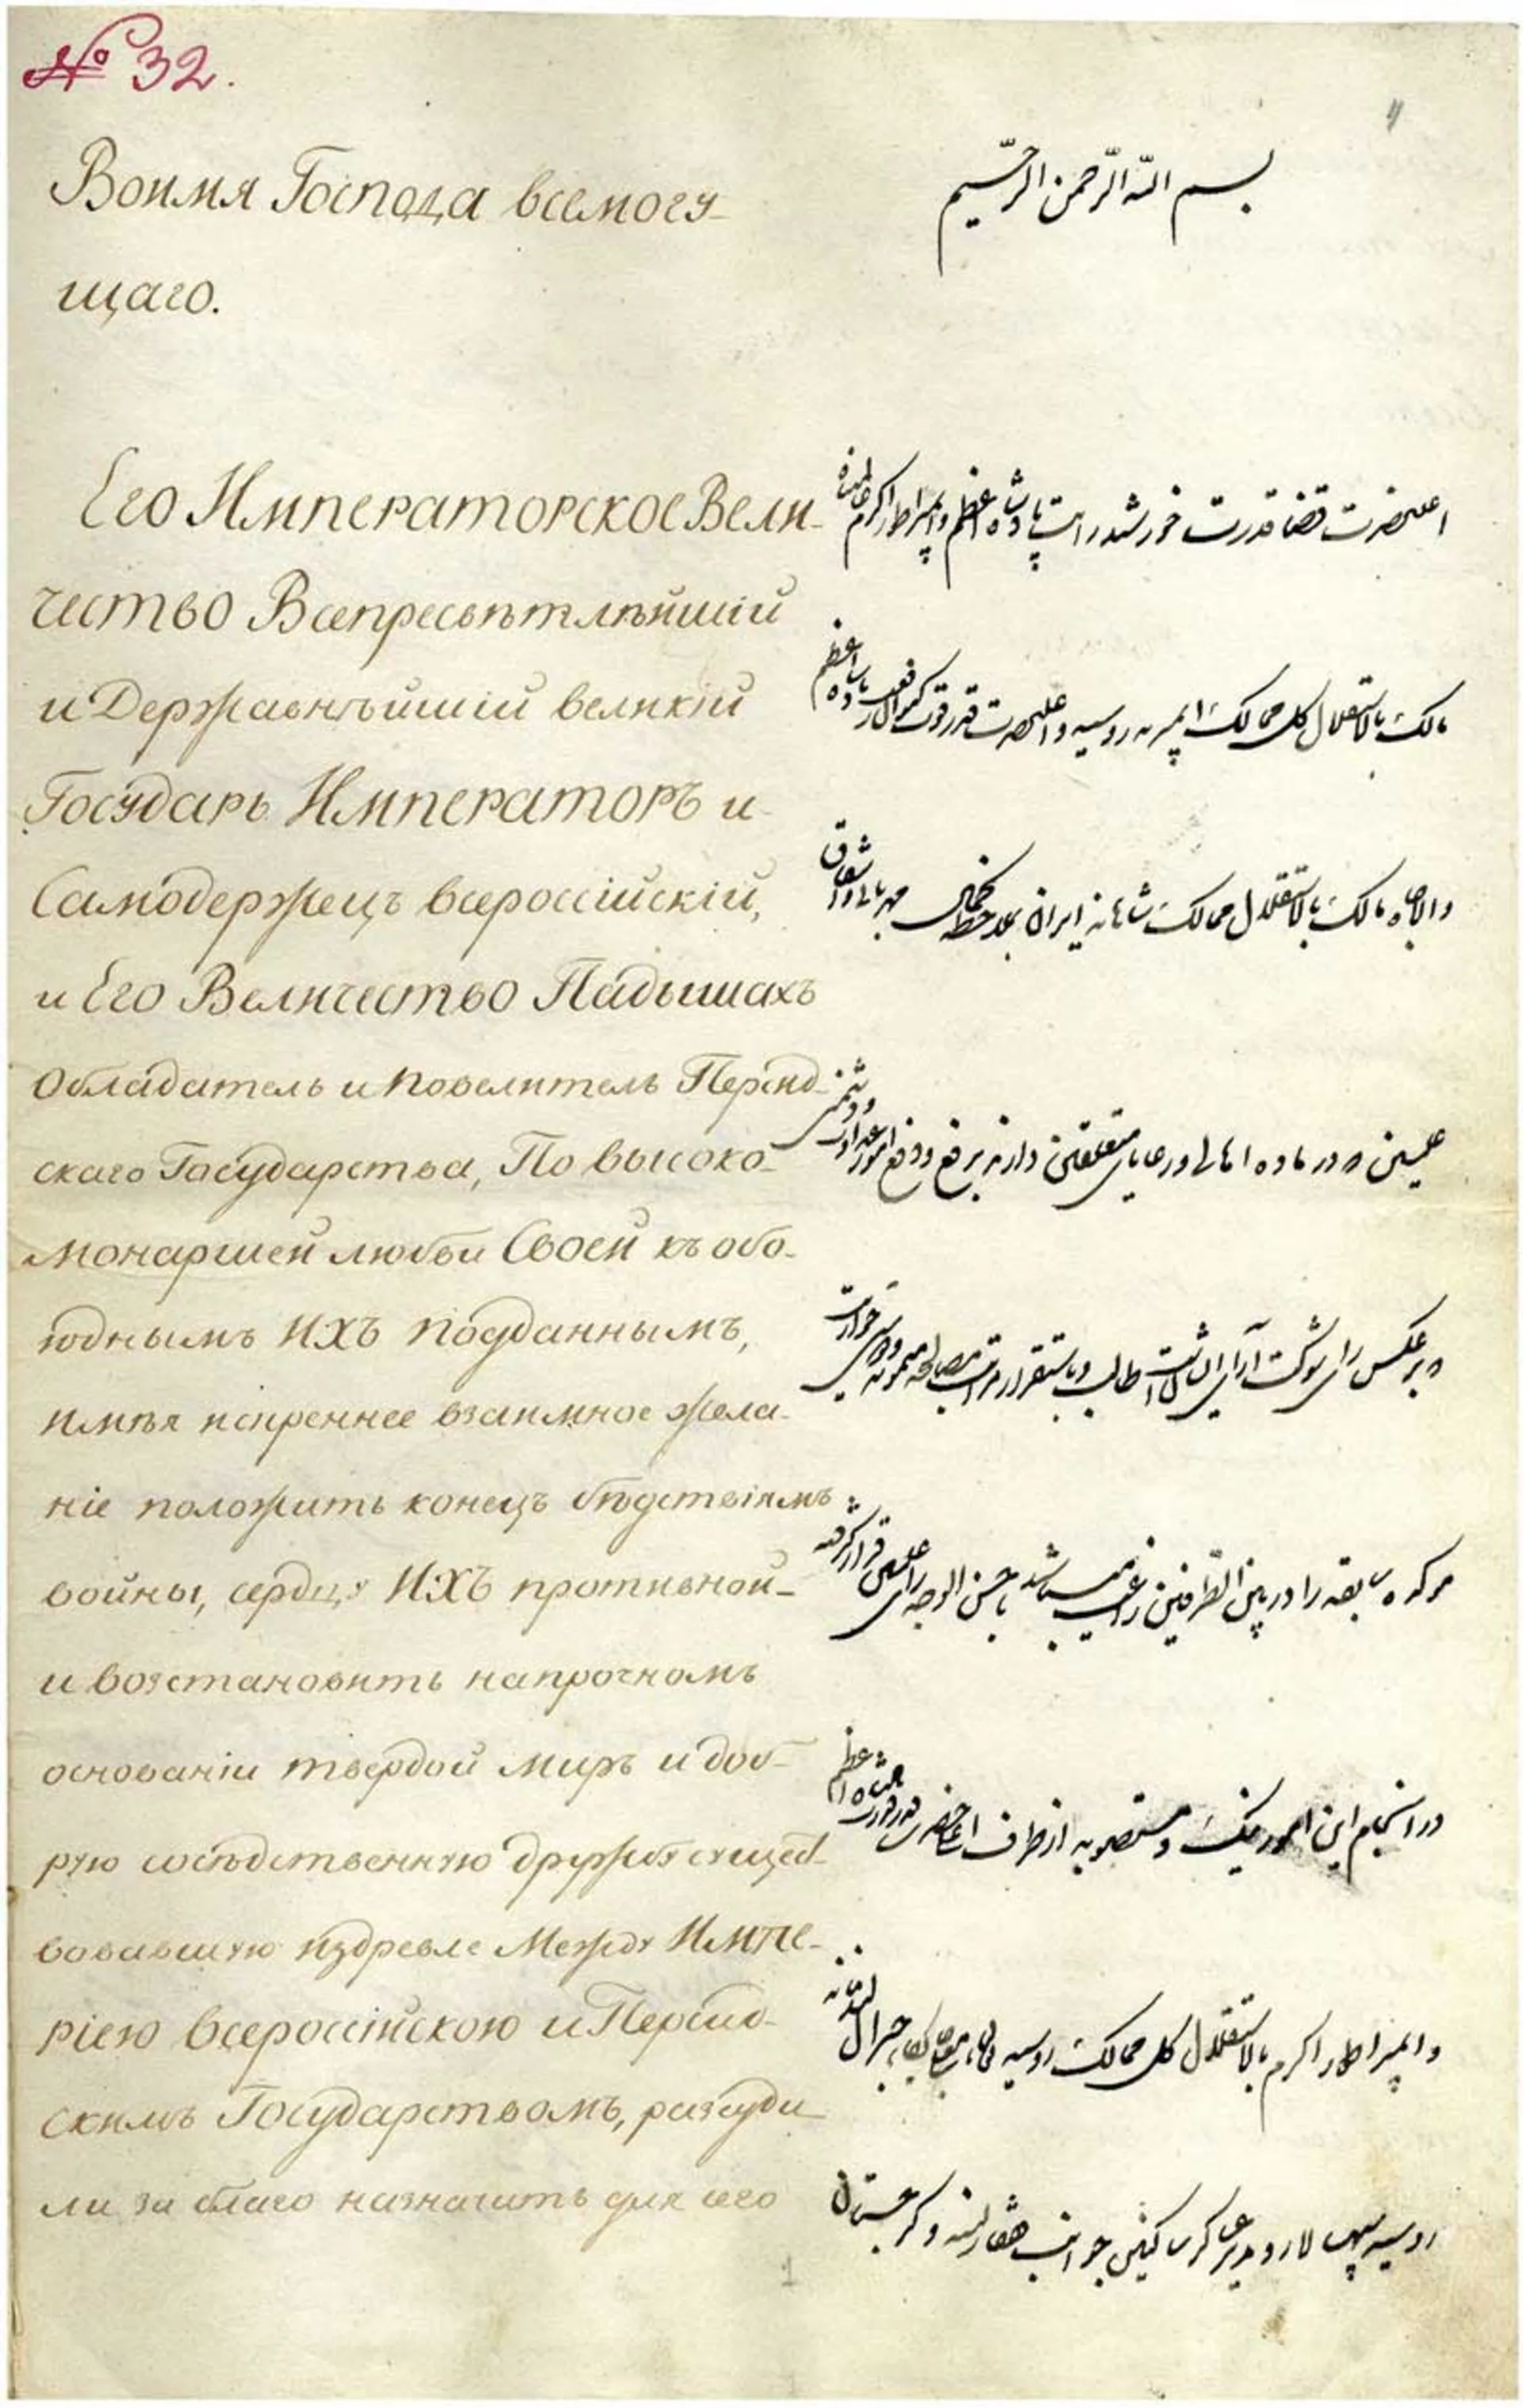 № 32.
Во имя Господа всемогу-
щаго.
Его Императорское Вели-
чество Всепресвѣтлѣйшій
и Державнѣйшій великій
Государь Императоръ и
Самодержецъ всероссійскій,
и Его Величество Падышахъ
Обладатель и повелитель Персид-
скаго Государства, По высоко-
монаршей любви Своей къ обо-
юднымъ ИХЪ подданнымъ,
имѣя искреннее взаимное жела-
ніе положить конецъ бѣдствіямъ
войны, сердцу ИХЪ противной
и возстановить на прочномъ
основаніи твердой миръ и доб-
рую сосѣдственную дружбу сущест-
вовавшую издревле между Импе-
ріею всероссійскою и Персид-
скимъ Государствомъ, разсуди-
ли за благо назначить для сего
1
بسم الله الرّحمن الرّحیم
اعلیحضرت قضا قدرت خورشید رایت پادشاه اعظم و ایمپراطور اکرم
مالک بالاستقلال کل ممالک ایمپریه روسیه و اعلیحضرت قدر قدرت پادشاه اعظم
والاجاه مالک بالاستقلال ممالک شاهانه ایران بملاحظه کمال مهربانی و اشفاق
علیتین که در ماده اهالی و رعایای متعلقین دارند رفع و دفع امور عداوت و دشمنی
که بر عکس رای شوکت آرای ایشان است طالب و باستقرار مراتب مصالحه میمونه و دوستی
مؤکده سابقه را در بین الطرفین راغب میباشند باحسن الوجه رای علیتین قرار گرفته
در انجام این امور نیک و مستصوبه از طرف اعلیحضرت قدر قدرت پادشاه اعظم
و ایمپراطور اکرم مالک بالاستقلال کل ممالک روسیه جنرال
روسیه سپهسالار و مدیر عساکر ساکنین جوانب قفقازیه و گرجستان